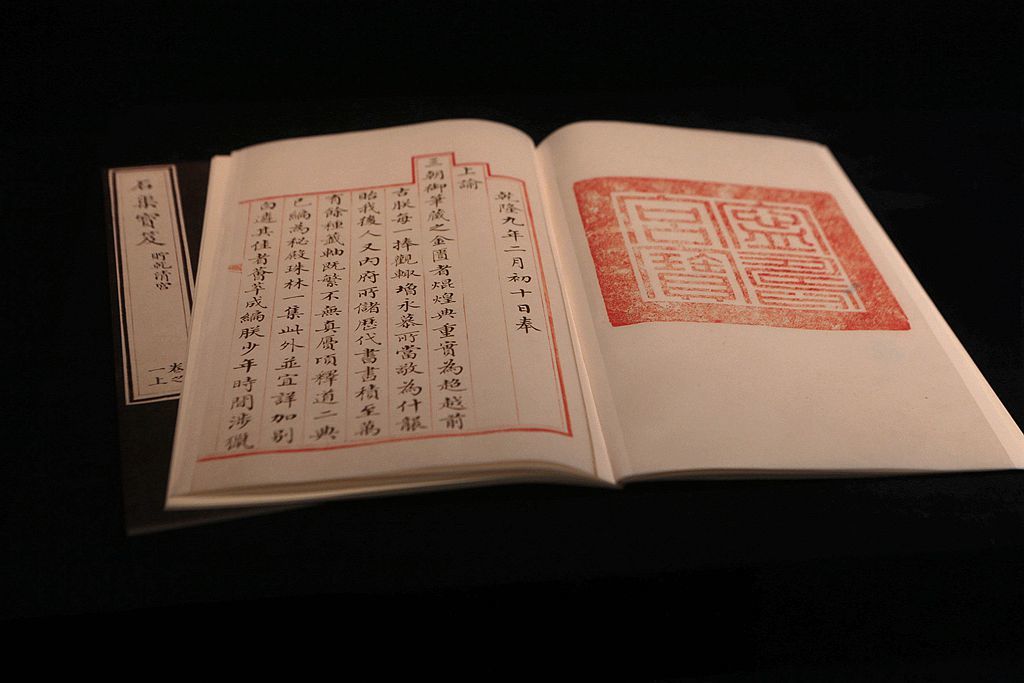 乾隆九年二月初十日奉
上諭
三朝御筆藏之金匱者焜煌典重實為超越前
古朕每一捧觀輒增永慕所當敬為什襲
貽我後人又內府所儲歷代書畫積至萬
有餘種籤軸既繁不無真贋頃釋道二典
已編為秘殿珠林一集此外並宜詳加別
白遴其佳者薈萃成編朕少年時間涉獵
石渠寶笈
貯乾清宮
卷之
一上